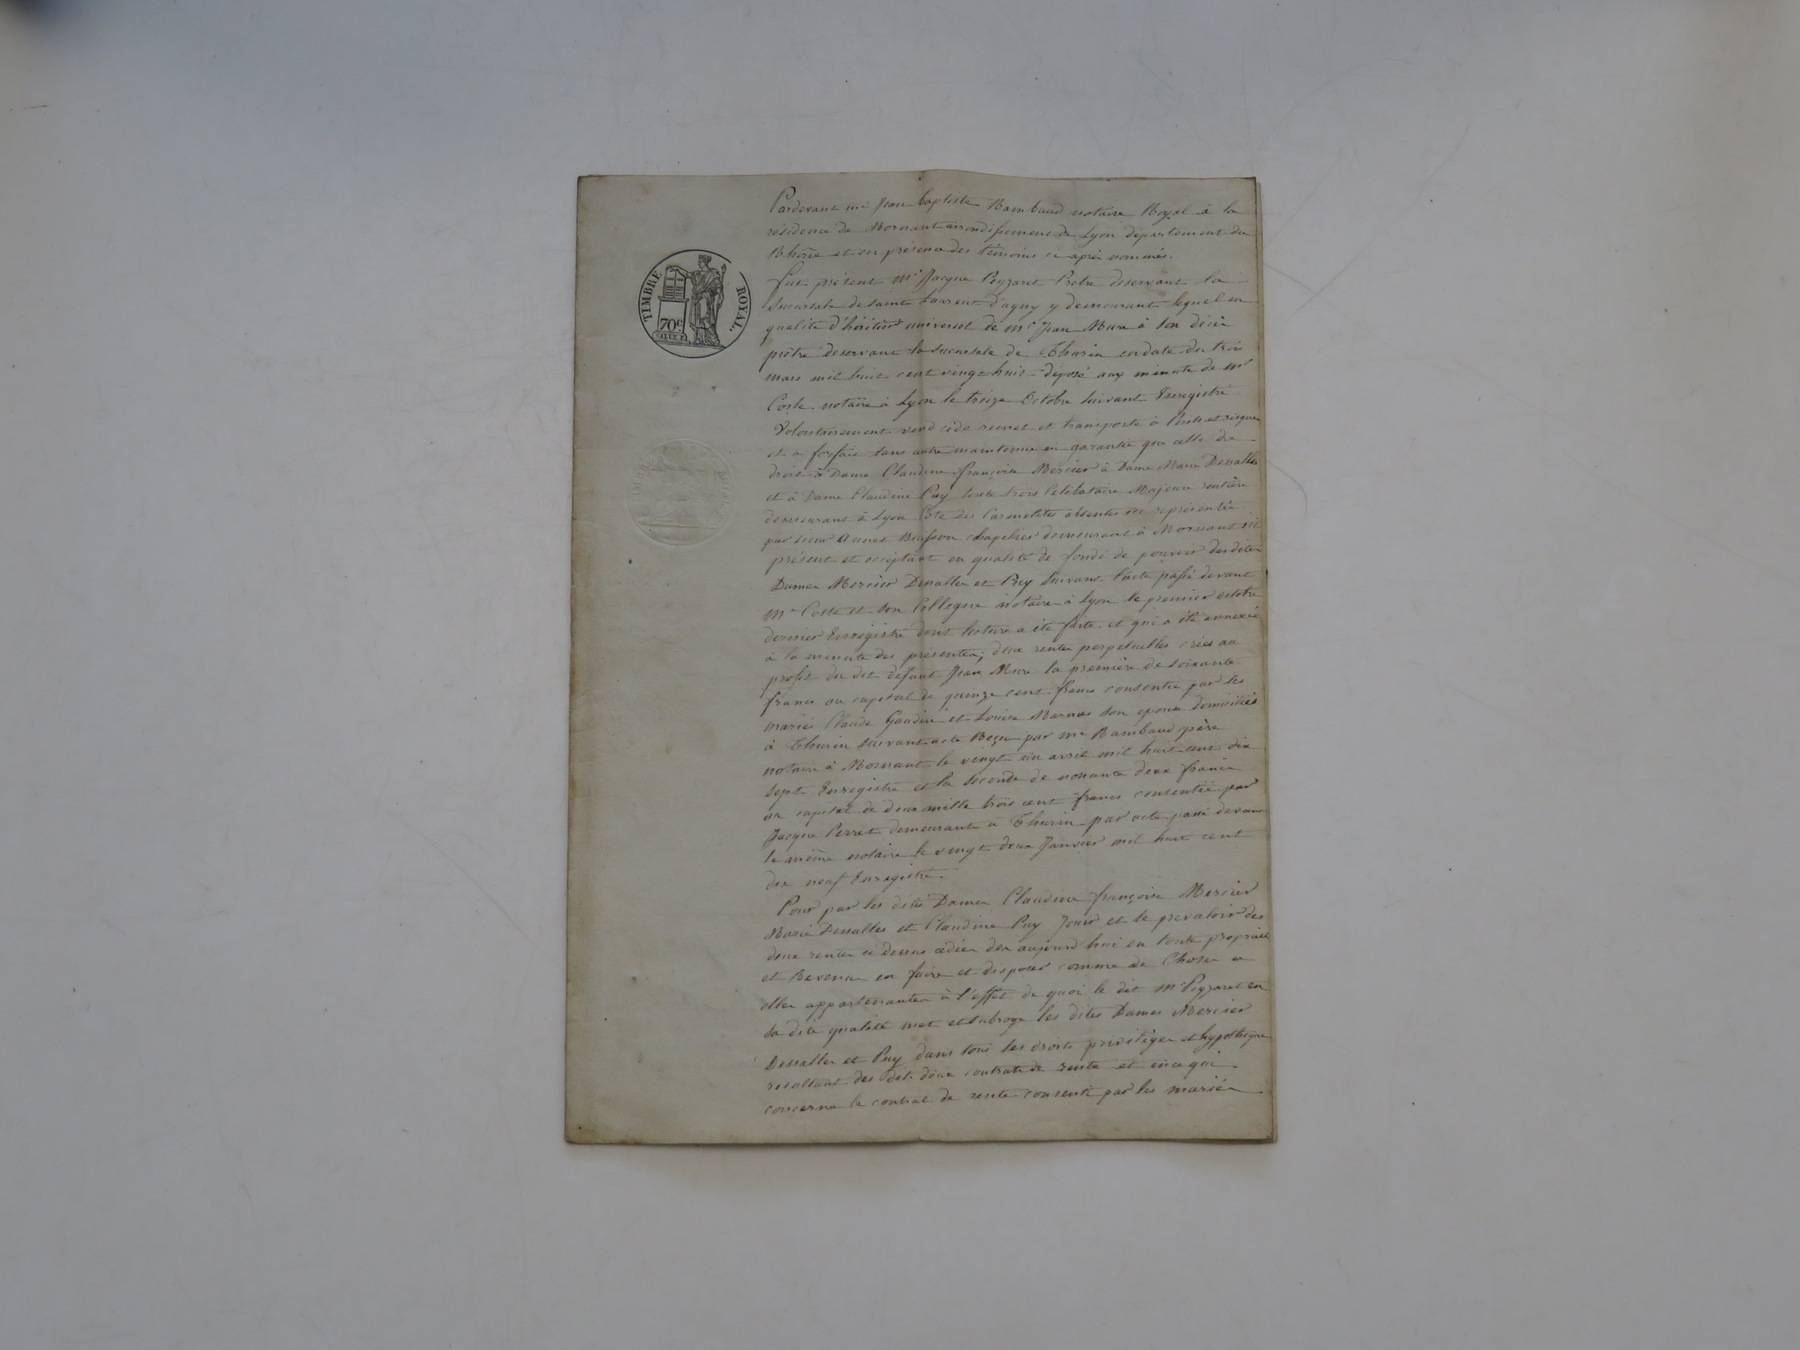 TIMBRE ROYAL.
70c
Pardevant me Jean baptiste Rambaud notaire Royal à la
résidence de Mornant arrondissement de Lyon département du
Rhône et en présence des témoins ci après nommés.
fut présent Mr Jacque Peyzaret Prêtre deservant la
Sucursale de Saint Laurent d'agny y demeurant lequel en
qualité d'héritier universel de mr Jean Mure à son décès
prêtre deservant la sucursale de Thurin en date du trois
mars mil huit cent vingt huit déposé aux minute de me
Coste notaire à Lyon le treize Octobre suivant Enregistré
Volontairement vend cède remet et transporte à périls et risques
et a forfait sans autre maintenue ni garantie que celle de
droit à Dame Claudine françoise Mercier à Dame Marie Dessalles
et à Dame Claudine Puy toute trois Célibataire Majeure rentière
demeurant à Lyon Cote des Carmelites absentes représentée
par sieur Buisson chapelier demeurant à Mornant ici
présent et acceptant en qualité de fondé de pouvoir desdites
Dames Mercier Dessalles et Puy Suivant l'acte passé devant
Me Coste et son Collegue notaire à Lyon le premier octobre
dernier Enregistré dont lecture a été faite et qui a été annexée
à la minute des présentes; deux rentes perpetuelles crées au
profit du dit défunt Jean Mure la première de soixante
francs au capital de quinze cent francs consentie par les
mariés Claude Gaudin et Louise Marnas son epouse domiciliés
à Thurin suivant acte Reçu par me Rambaud père
notaire à Mornant le vingt un avril mil huit cent dix
sept Enregistré et la seconde de nonante deux francs
au capital de deux mille trois cent francs consentie par
Jacque Perret demeurant à Thurin par acte passé devant
le même notaire le vingt deux Janvier mil huit cent
dix neuf Enregistré.
Pour par les dites Dames Claudine françoise Mercier
Marie Dessalles et Claudine Puy Jouir et se prevaloir des
deux rentes ci dessus cédées dès aujourd'hui en toute propriété
et Revenus en faire et disposer comme de Choses a
elles appartenantes à l'effet de quoi le dit Mr Peyzaret en
sa dite qualité met et subroge les dites Dames Mercier
Dessalles et Puy dans tous les droits privilèges et hypothèques
resultant des dits deux contrats de rente et en ce qui
concerne le contrat de rente consenti par les mariés